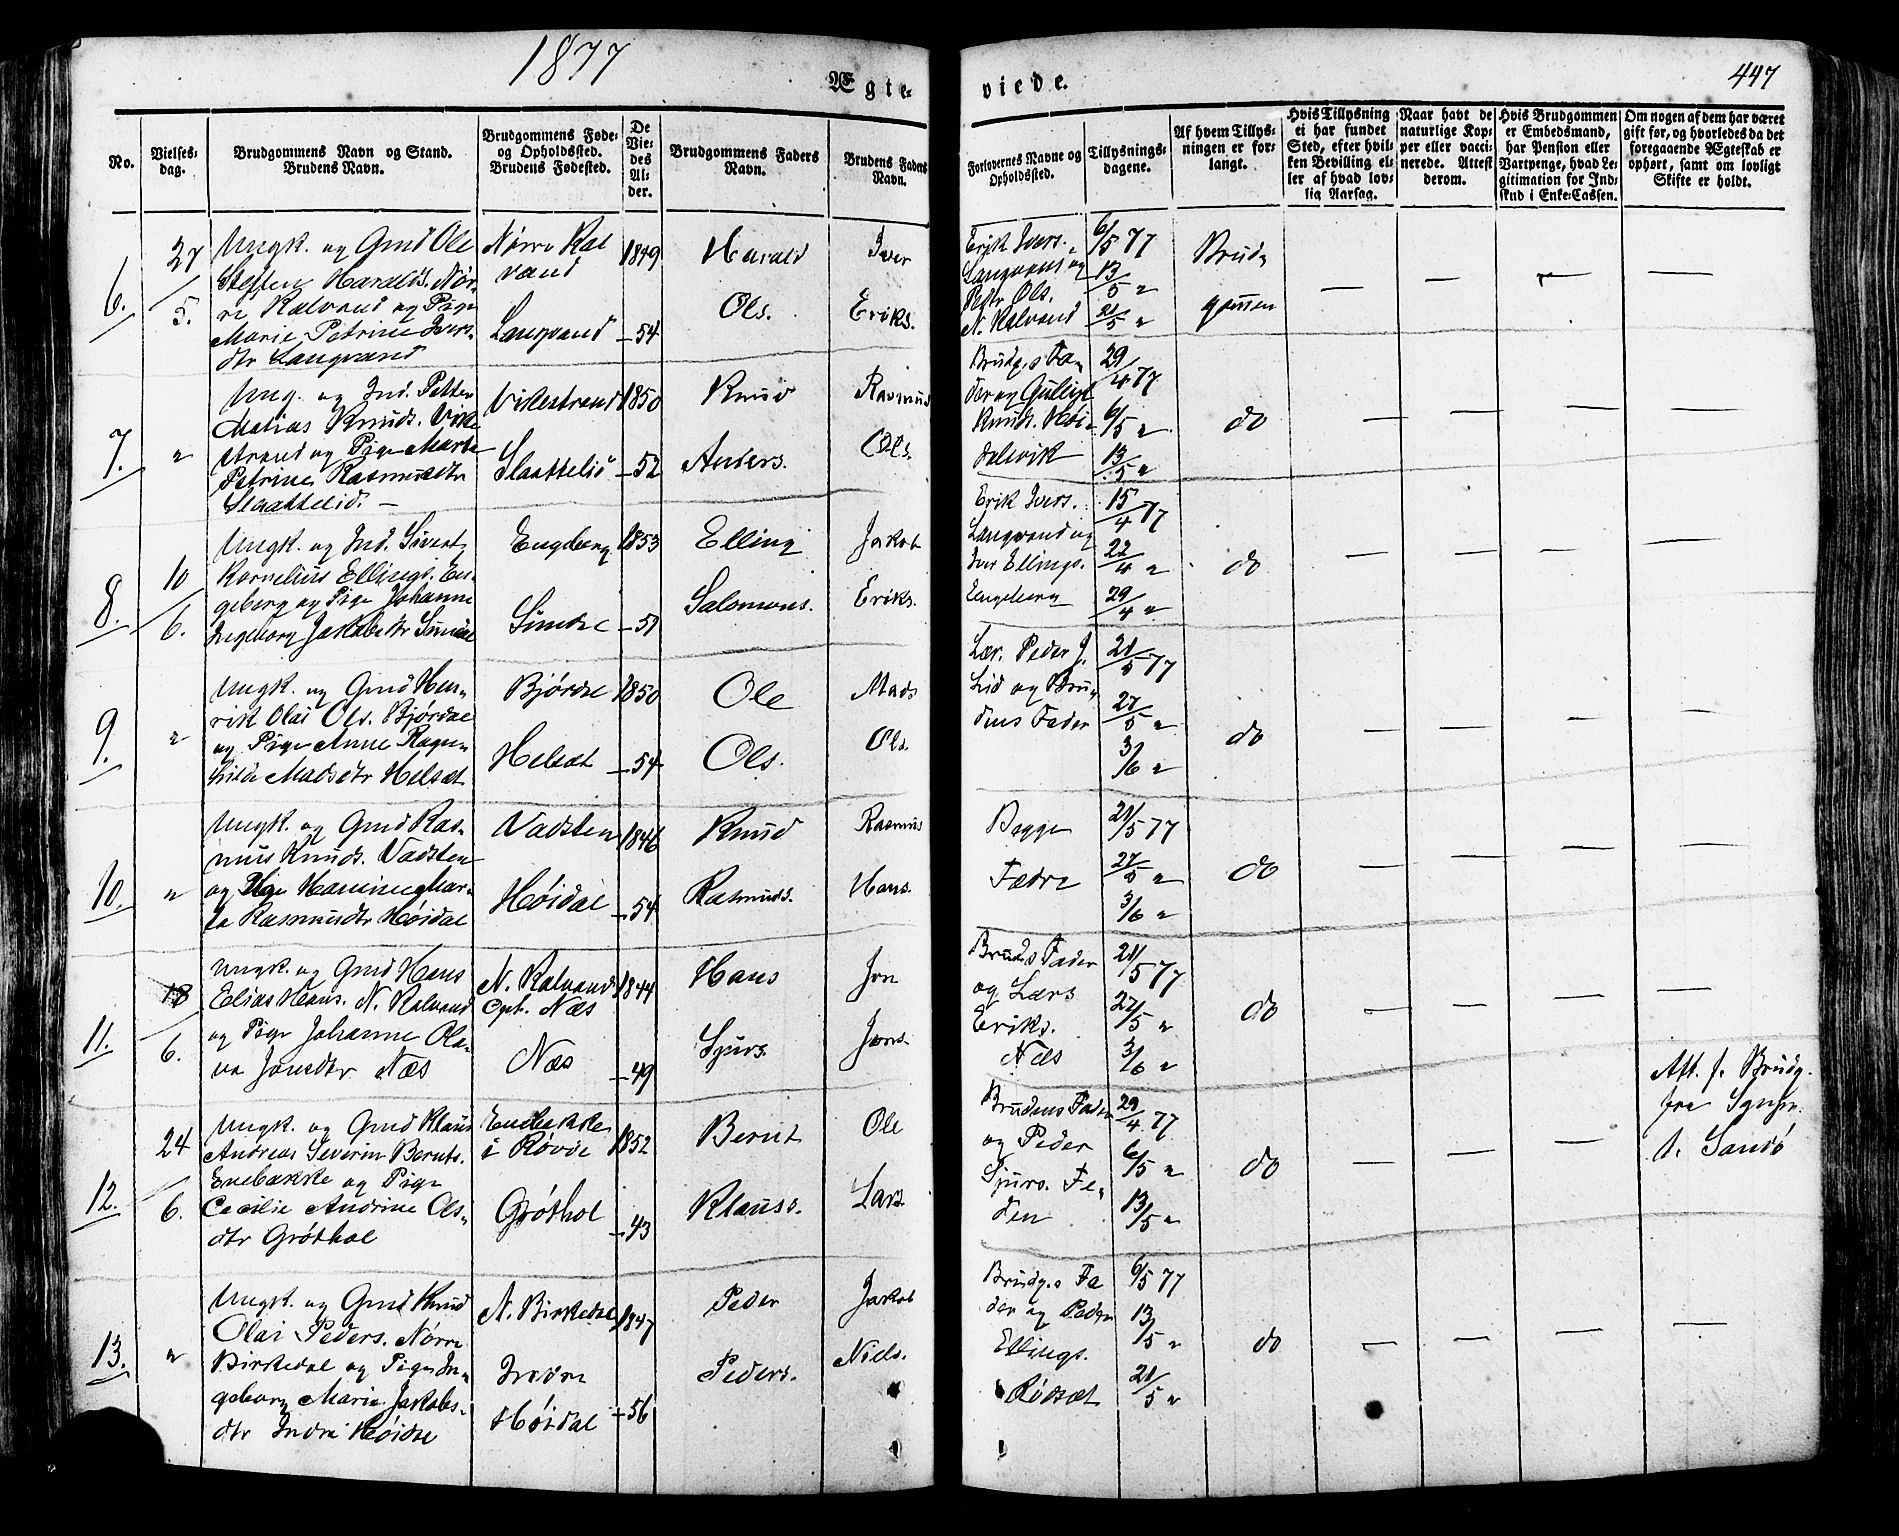 1877
Ægte-
viede.
447
No.
Vielses-
dag.
Brudgommens Navn og Stand.
Brudens Navn.
Brudgommens Føde-
og Opholdssted.
Brudens Fødested.
De
Vie-
des
Al-
der.
Brudgommens Faders
Navn.
Brudens Faders
Navn.
Forlovernes Navne og
Opholdssted.
Tillysnings-
dagene.
Af hvem Tillys-
ningen er for-
langt.
Hvis Tillysning
ei har fundet
Sted, efter hvil-
ken Bevilling el-
ler af hvad lov-
lig Aarsag.
Naar havt de
naturlige Kop-
per eller vacci-
nerede. Attest
derom.
Hvis Brudgommen
er Embedsmand,
har Pension eller
Vartpenge, hvad Le-
gitimation for Ind-
skud i Enke-Cassen.
Om nogen af dem har været
gift før, og hvorledes da det
foregaaende Ægteskab er
ophørt, samt om lovligt
Skifte er holdt.
6.
27/5.
Ungk. og Gmd Ole
Steffen Haralds. Nør-
re Kalvand og Pige
Marie Petrine Ivers-
dtr Langvand
Nørre Kal
vand
Langvand
1849
-54
Harald
Ols.
Iver
Eriks.
Erik Ivers.
Langvand og
Peter Ols.
N. Kalvand
6/5 77
13/5 "
21/5 "
Brud-
gommen
7.
"
Ung. og Ind. Petter
Matias Knuds. Vike
strand og Pige Marte
Petrine Rasmusdtr
Slaattelid. -
Vikestrand
Slaattelid
1850
-52
Knud
Anders.
Rasmus
Ols.
Brudg.s Fa-
der og Gullik
Knuds. Høi-
dalsvik
29/4 77
6/5 "
13/5 "
do
8.
10/6.
Ungk. og Ind. Sivert
Kornelius Ellings. En-
geberg og Pige Johanne
Ingeborg Jakobsdtr Sundal
Engeberg
1853
-51
Elling
Salomons.
Jakob
Eriks.
Erik Ivers.
Langvand og
Iver Ellings.
Engeberg
15/4 77
22/4 "
29/4 "
do
9.
"
Ungk. og Gmd Hen-
rik Olai Ols. Bjørdal
og Pige Anne Ragn-
hilde Madsdtr Helsæt
Bjørdal
Helsæt
1850
-54
Ole
Ols.
Mads
Ols.
Lær. Peder J.
Lid og Bru-
dens Fader
21/5 77
27/5 "
3/6 "
do
10.
"
Ungk. og Gmd Ras-
mus Knuds. Vadsten
og Pige Hanninemar-
ta Rasmusdtr Høidal
Vadsten
Høidal
1846
-54
Knud
Rasmuds.
Rasmus
Hans.
Begge
Fædre
21/5 77
27/5 "
3/6 "
do
11.
18/6.
Ungk. og Gmd Hans
Elias Hans. N. Kalvand
og Pige Johanne Ola-
va Jonsdtr Næs
N. Kalvand
Oph. Næs
Næs
1844
-49
Hans
Sjurs.
Jon
Jons.
Brud.s Fader
og Lars
Eriks.
Næs
21/5 77
27/5 "
3/6 "
do
12.
24/6.
Ungk. og Gmd Klaus
Andreas Severin Bernts.
Enebakke og Pige
Cecilie Andrine Ols-
dtr Grøthol
Enebakke
i Røvde
Grøthol
1852
-43
Bernt
Klauss.
Ole
Lars.
Brudens Fader
og Peder
Sjurs. Fe-
den
29/4 77
6/5 "
13/5 "
do
Att. f. Brudg.
fra Sgnpr.
t. Sandø
13.
"
Ungk. og Gmd Knud
Olai Peders. Nørre
Birkedal og Pige In-
geborg Marie Jakobs-
dtr Indre Høidal
N. Birkedal
Indre
Høidal
1847
-56
Peder
Peders.
Jakob
Niels.
Brudg.s Fa
der og Peder
Ellings.
Rødsæt
6/5 77
13/5 "
21/5 "
do